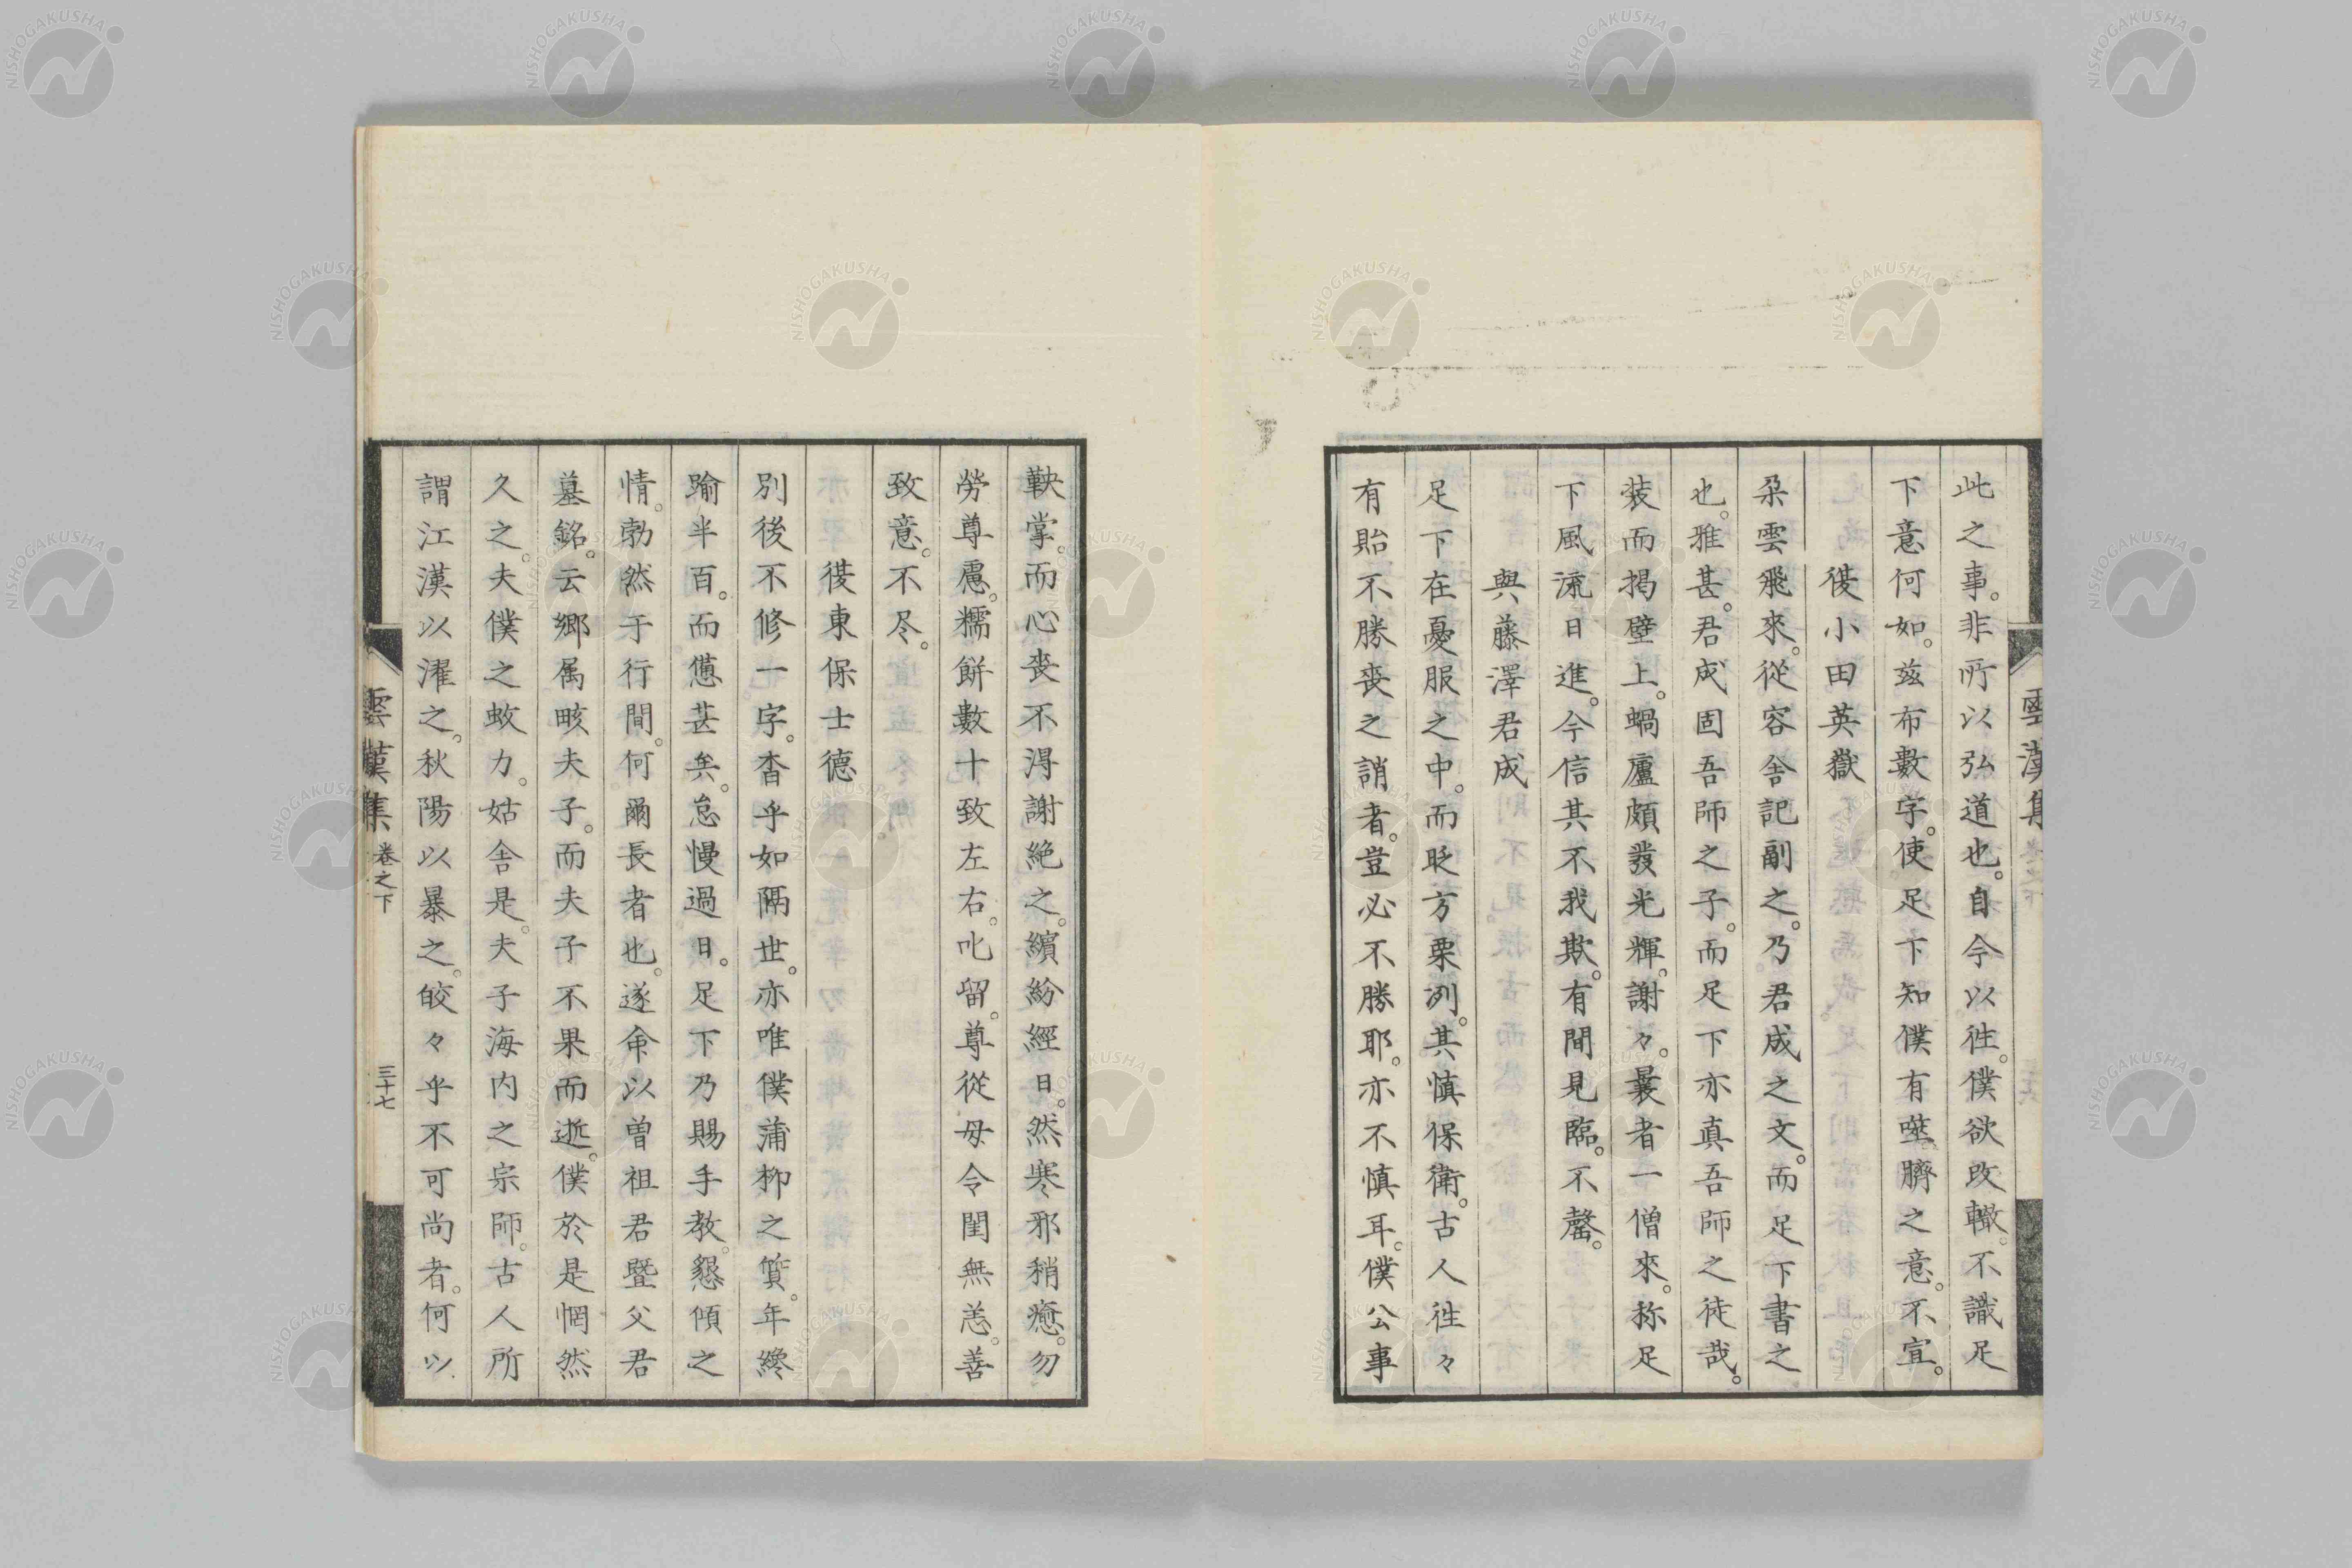 此之事。非所以弘道也。自今以徃。僕欲改轍。不識足
下意何如。玆布數字。使足下知僕有噬臍之意。不宣。
復小田英嶽
朶雲飛來。從容舎記副之。乃君成之文。而足下書之
也。雅甚。君成固吾師之子。而足下亦真吾師之徒哉。
装而掲壁上。蝸廬頗發光輝。謝々。曩者一僧來。称足
下風流日進。今信其不我欺。有間見臨。不罄。
與藤澤君成
足下在憂服之中。而眨方栗冽。其慎保衛。古人徃々
有貽不勝喪之誚者。豈必不勝耶。亦不慎耳。僕公事
鞅掌。而心喪不得謝絶之。繽紛經日。然寒邪稍癒。勿
勞尊慮。糯餅數十致左右。叱留。尊從母令閨無恙。善
致意。不尽。
復東保士德
別後不修一字。杳乎如隔世。亦唯僕蒲柳之質。年纔
踰半百。而憊甚矣。怠慢過日。足下乃賜手教。懇傾之
情。勃然于行間。何爾長者也。遂命以曽祖君暨父君
墓銘。云郷属畡夫子。而夫子不果而逝。僕於是惘然
久之。夫僕之蚊力。姑舎是。夫子海内之宗師。古人所
謂江漢以濯之。秋陽以暴之。皎々乎不可尚者。何以
雲漢集
卷之下
三十七
雲漢集